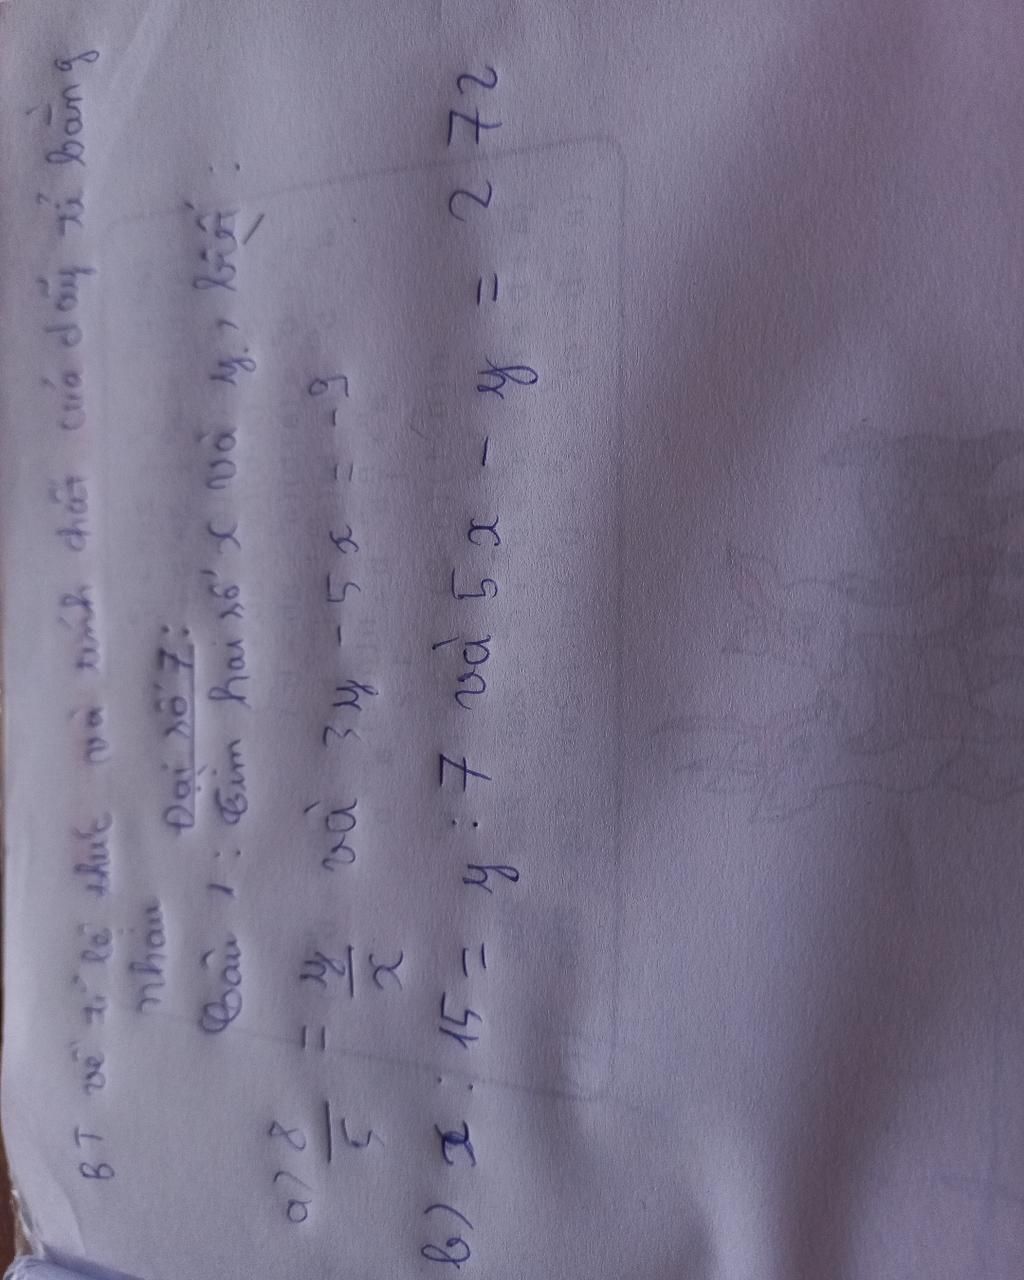 BT về tỉ lệ thức và tính chất của dãy tỉ bằng
nhau
Đại số 7:
Bài 1: Tìm hai số x và y, biết:
a) 8/5 = y/x và 3y - 5x = -9
b) x : 15 = y : 7 và 5x - y = 272